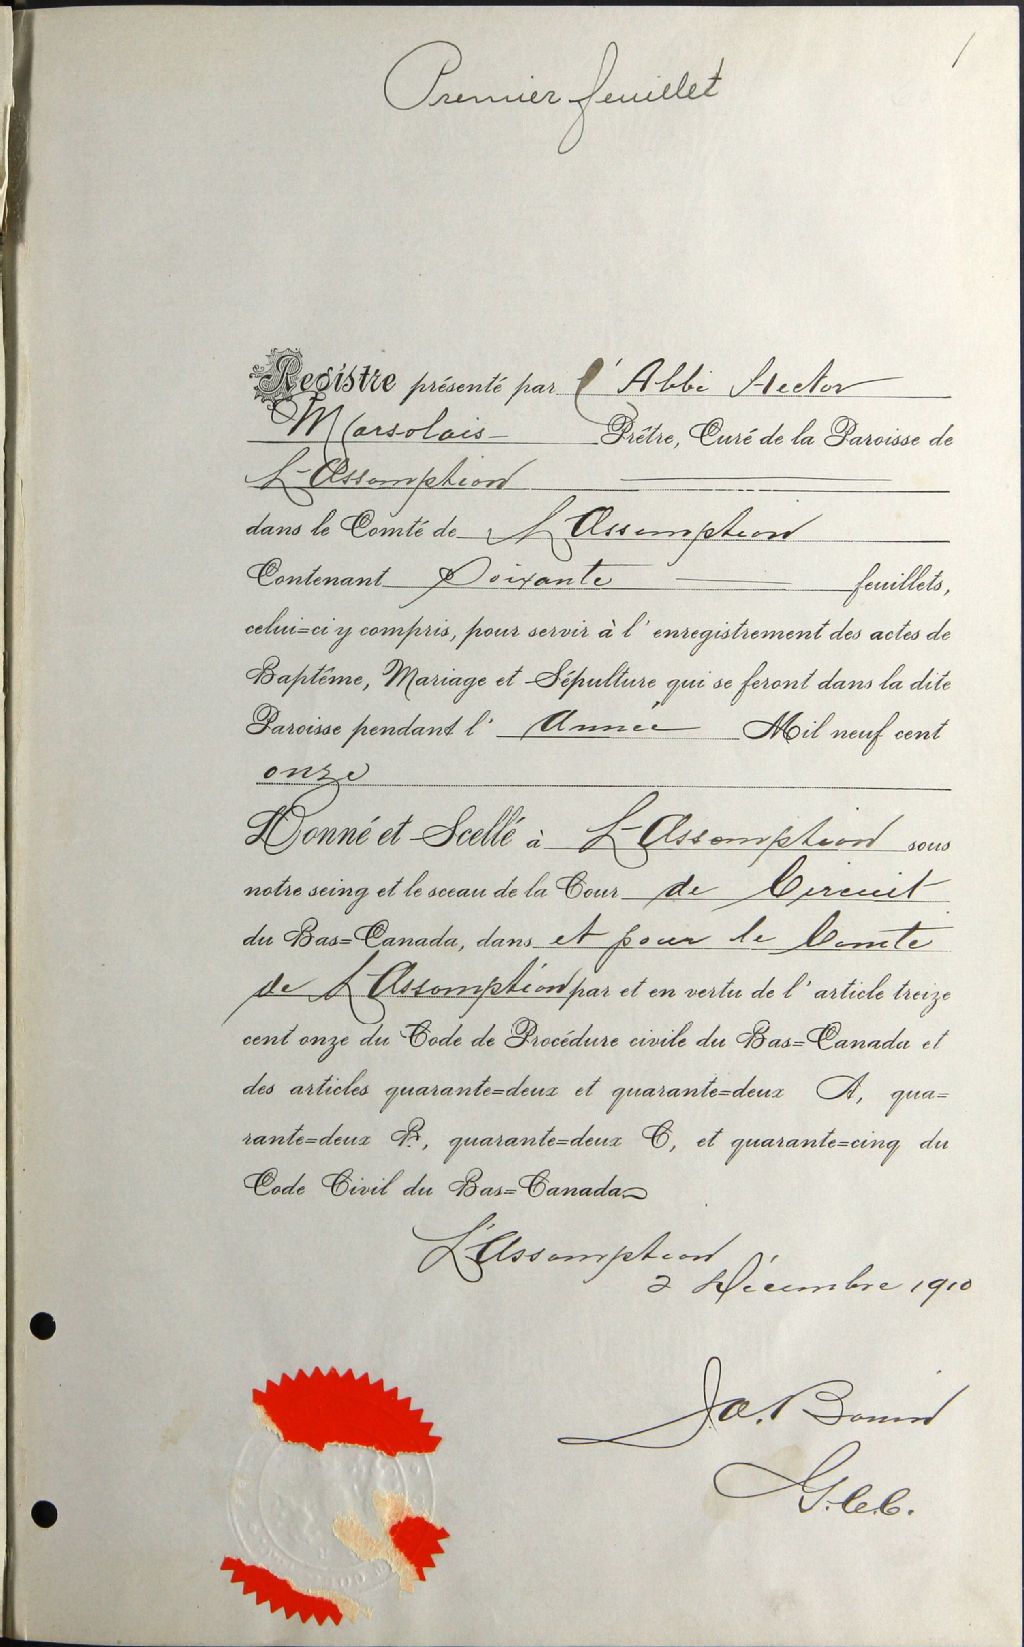 1
Premier feuillet
Registre présenté par l'Abbé Hector
Marsolais Prêtre, Curé de la Paroisse de
L'Assomption
dans le Comté de L'Assomption
Contenant Soixante feuillets,
celui=ci y compris, pour servir à l'enregistrement des actes de
Baptême, Mariage et Sépulture qui se feront dans la dite
Paroisse pendant l'Année Mil neuf cent
onze
Donné et Scellé à L'Assomption sous
notre seing et le sceau de la Cour de Circuit
du Bas=Canada, dans et pour le Comté
de L'Assomption par et en vertu de l'article treize
cent onze du Code de Procédure civile du Bas=Canada et
des articles quarante=deux et quarante=deux A, qua=
rante=deux B, quarante=deux C, et quarante=cinq du
Code Civil du Bas=Canada
L'Assomption
2 Décembre 1910
J.O. Bonin
G.C.C.